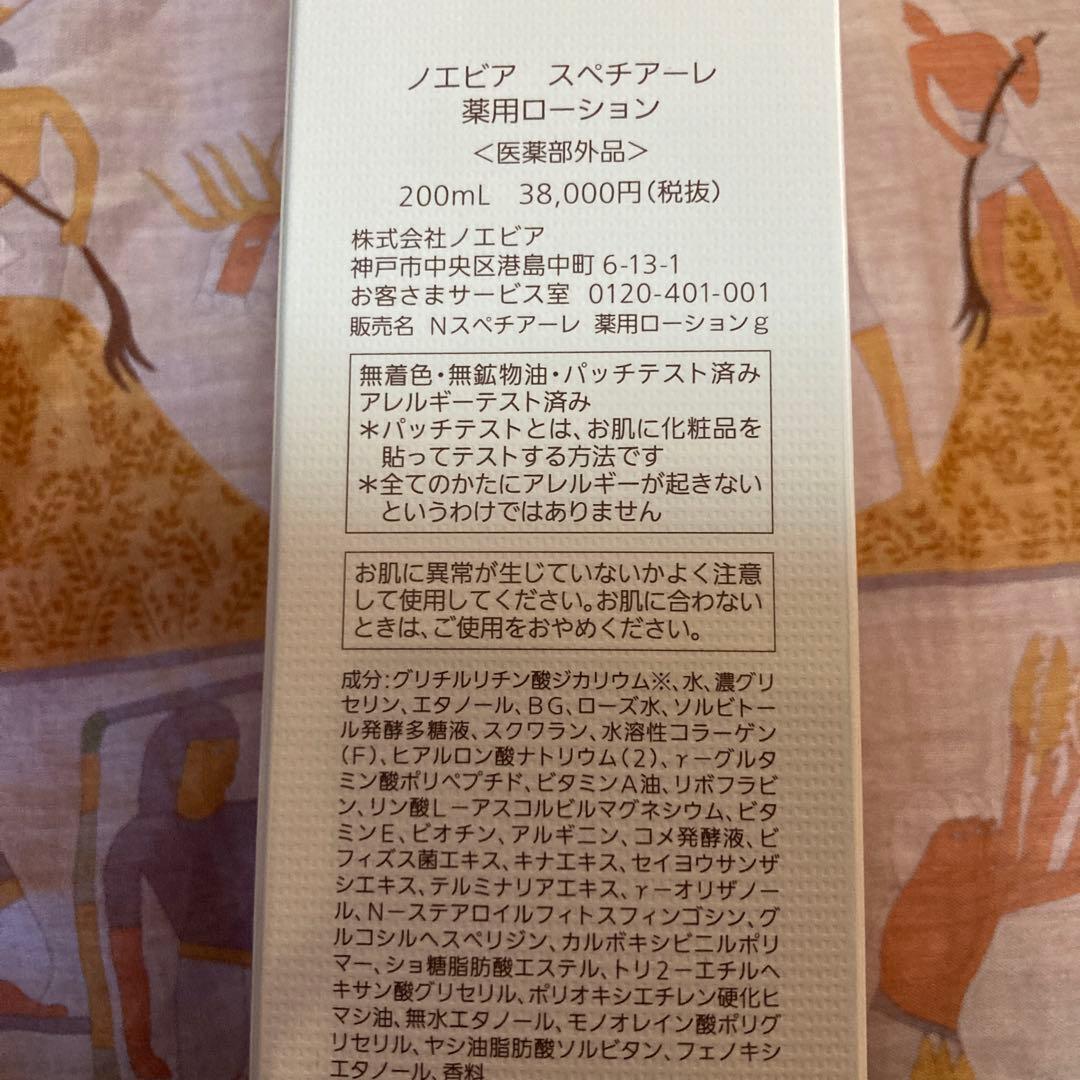 ノエビア　スペチアーレ
薬用ローション
＜医薬部外品＞
200mL　38,000円（税抜）
株式会社ノエビア
神戸市中央区港島中町 6-13-1
お客さまサービス室　0120-401-001
販売名　Nスペチアーレ　薬用ローションg
無着色・無鉱物油・パッチテスト済み
アレルギーテスト済み
＊パッチテストとは、お肌に化粧品を
貼ってテストする方法です
＊全てのかたにアレルギーが起きない
というわけではありません
お肌に異常が生じていないかよく注意
して使用してください。お肌に合わない
ときは、ご使用をおやめください。
成分：グリチルリチン酸ジカリウム※、水、濃グリ
セリン、エタノール、BG、ローズ水、ソルビトー
ル発酵多糖液、スクワラン、水溶性コラーゲン
（F）、ヒアルロン酸ナトリウム（2）、γーグルタ
ミン酸ポリペプチド、ビタミンA油、リボフラビ
ン、リン酸Lーアスコルビルマグネシウム、ビタ
ミンE、ビオチン、アルギニン、コメ発酵液、ビ
フィズス菌エキス、キナエキス、セイヨウサンザ
シエキス、テルミナリアエキス、γーオリザノー
ル、Nーステアロイルフィトスフィンゴシン、グ
ルコシルヘスペリジン、カルボキシビニルポリ
マー、ショ糖脂肪酸エステル、トリ2ーエチルヘ
キサン酸グリセリル、ポリオキシエチレン硬化ヒ
マシ油、無水エタノール、モノオレイン酸ポリグ
リセリル、ヤシ油脂肪酸ソルビタン、フェノキシ
エタノール、香料